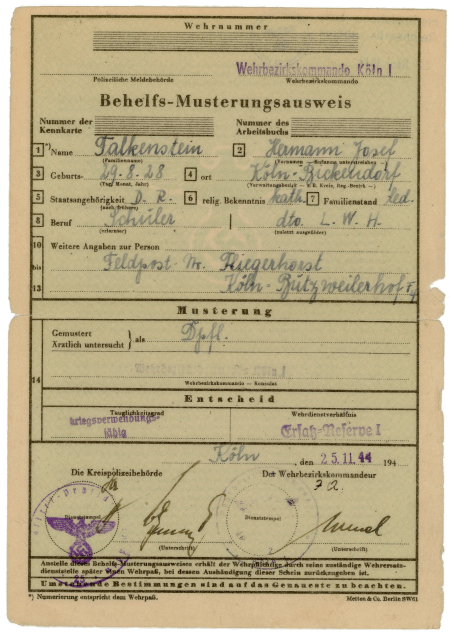 Wehrnummer
Wehrbezirkskommando Köln I
Polizeiliche Meldebehörde Wehrbezirkskommando
Behelfs-Musterungsausweis
Nummer der Kennkarte Nummer des Arbeitsbuchs
1 *) Name Falkenstein 2 Hermann Josef
(Familienname) (Vornamen — Rufname unterstreichen)
3 Geburts- 29.8.28 4 ort Köln-Bickendorf
(Tag, Monat, Jahr) (Verwaltungsbezirk — z.B. Kreis, Reg.-Bezirk —)
5 Staatsangehörigkeit D.R. 6 relig. Bekenntnis kath. 7 Familienstand led.
(auch frühere)
8 Beruf Schüler dto. L.W.H.
(erlernter) (zuletzt ausgeübter)
10 Weitere Angaben zur Person
bis Feldpost-Nr. Fliegerhorst
13 Köln-Butzweilerhof
Musterung
Gemustert
Ärztlich untersucht } als Dpfl.
14
Wehrbezirkskommando — Konsulat
Entscheid
Tauglichkeitsgrad Wehrdienstverhältnis
kriegsverwendungs-
fähig Ersatz-Reserve I
Köln, den 25.11.44 194
Die Kreispolizeibehörde Der Wehrbezirkskommandeur
Dienststempel Dienststempel
(Unterschrift) (Unterschrift)
Anstelle dieses Behelfs-Musterungsausweises erhält der Wehrpflichtige durch seine zuständige Wehrersatz-
dienststelle später einen Wehrpaß, bei dessen Aushändigung dieser Schein zurückzugeben ist.
Umstehende Bestimmungen sind auf das Genaueste zu beachten.
*) Numerierung entspricht dem Wehrpaß. Metten & Co. Berlin SW61